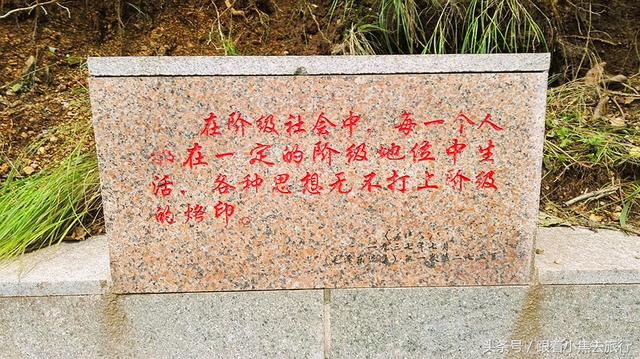 在阶级社会中，每一个人
都在一定的阶级地位中生
活，各种思想无不打上阶级
的烙印。
一九三七年七月
头条号 / 跟着小焦去旅行